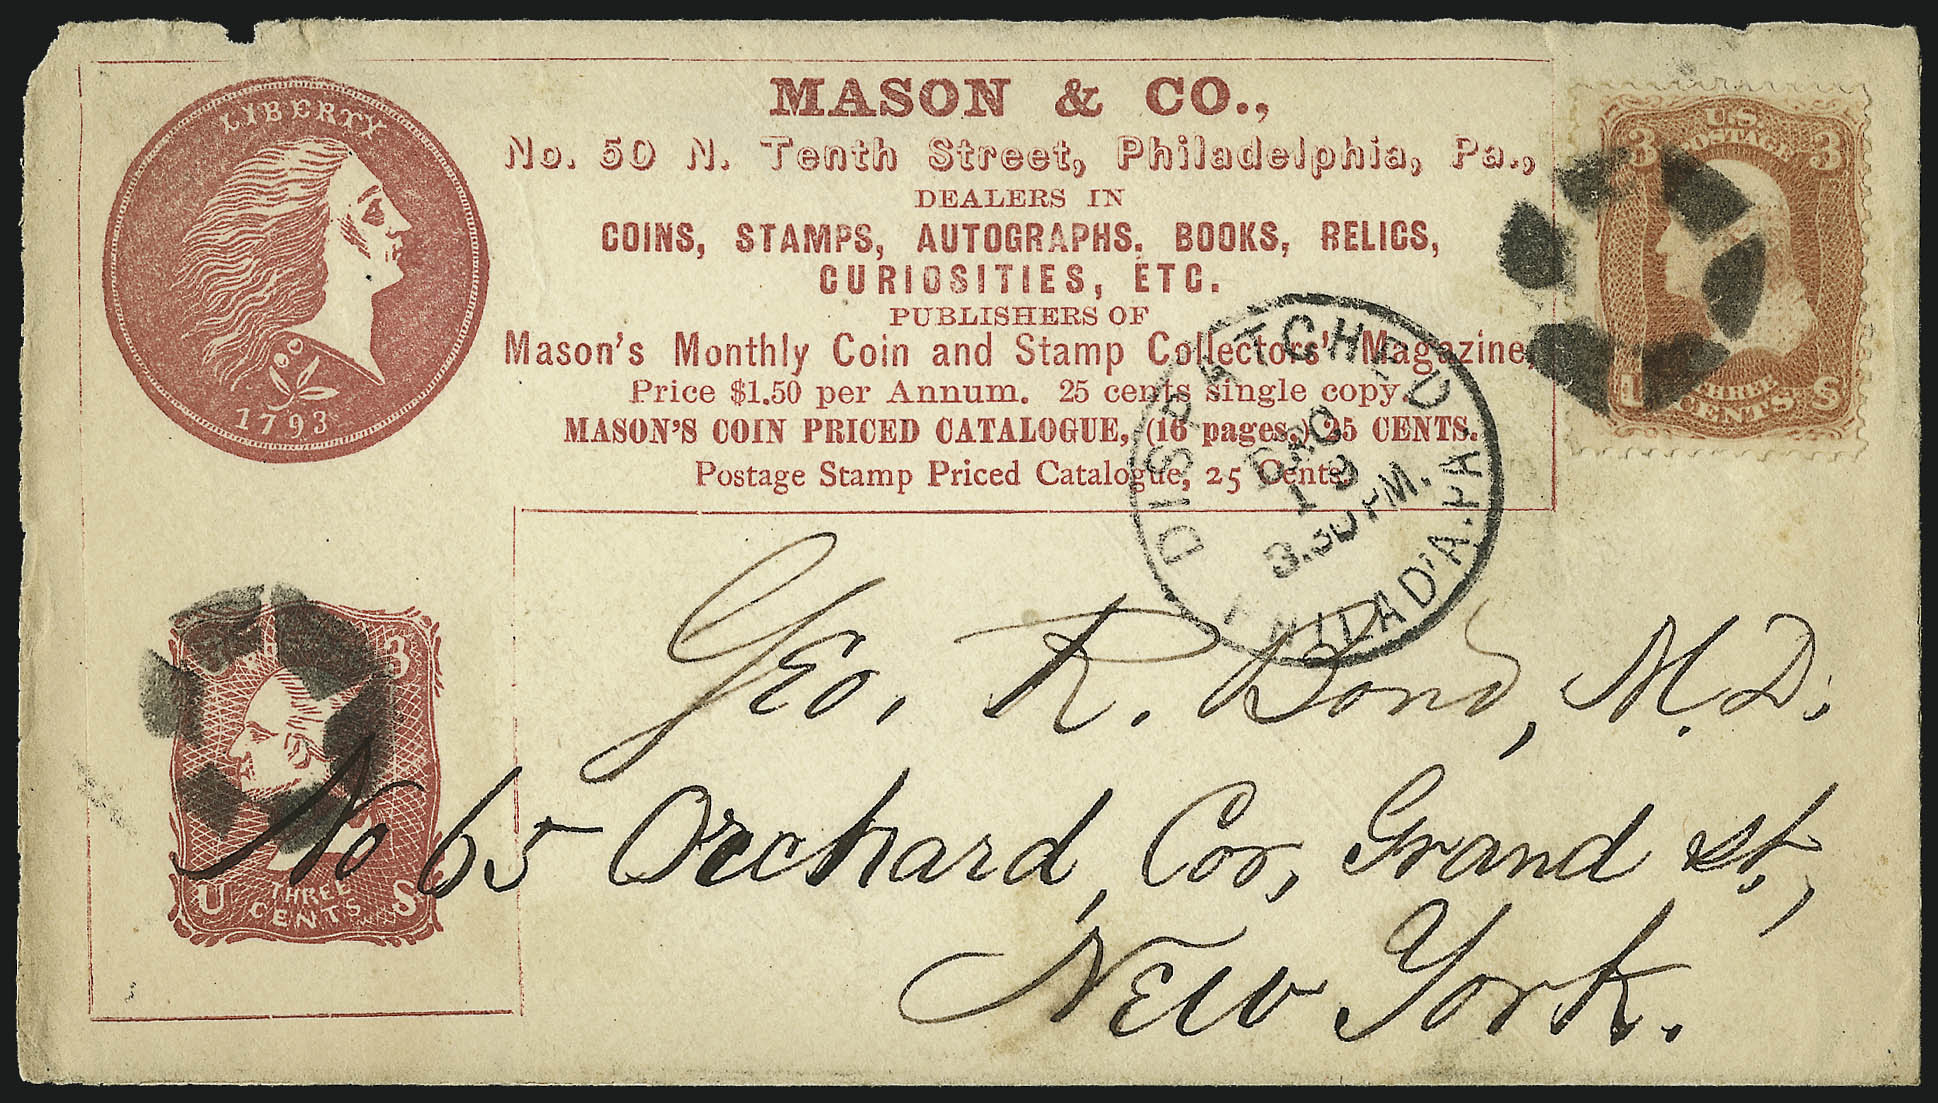 LIBERTY
1793
MASON & CO.,
No. 50 N. Tenth Street, Philadelphia, Pa.,
DEALERS IN
COINS, STAMPS, AUTOGRAPHS, BOOKS, RELICS,
CURIOSITIES, ETC.
PUBLISHERS OF
Mason's Monthly Coin and Stamp Collectors' Magazine,
Price $1.50 per Annum. 25 cents single copy.
MASON'S COIN PRICED CATALOGUE, (16 pages,) 25 CENTS.
Postage Stamp Priced Catalogue, 25 Cents.
U.S.
POSTAGE
3 3
THREE
CENTS
S
DISPATCHED
DEC
19
3.30 PM.
PHILAD'A. PA
3
U THREE S
CENTS
Geo. R. Bond, M.D.
No 65 Orchard, Cor, Grand st.,
New York.